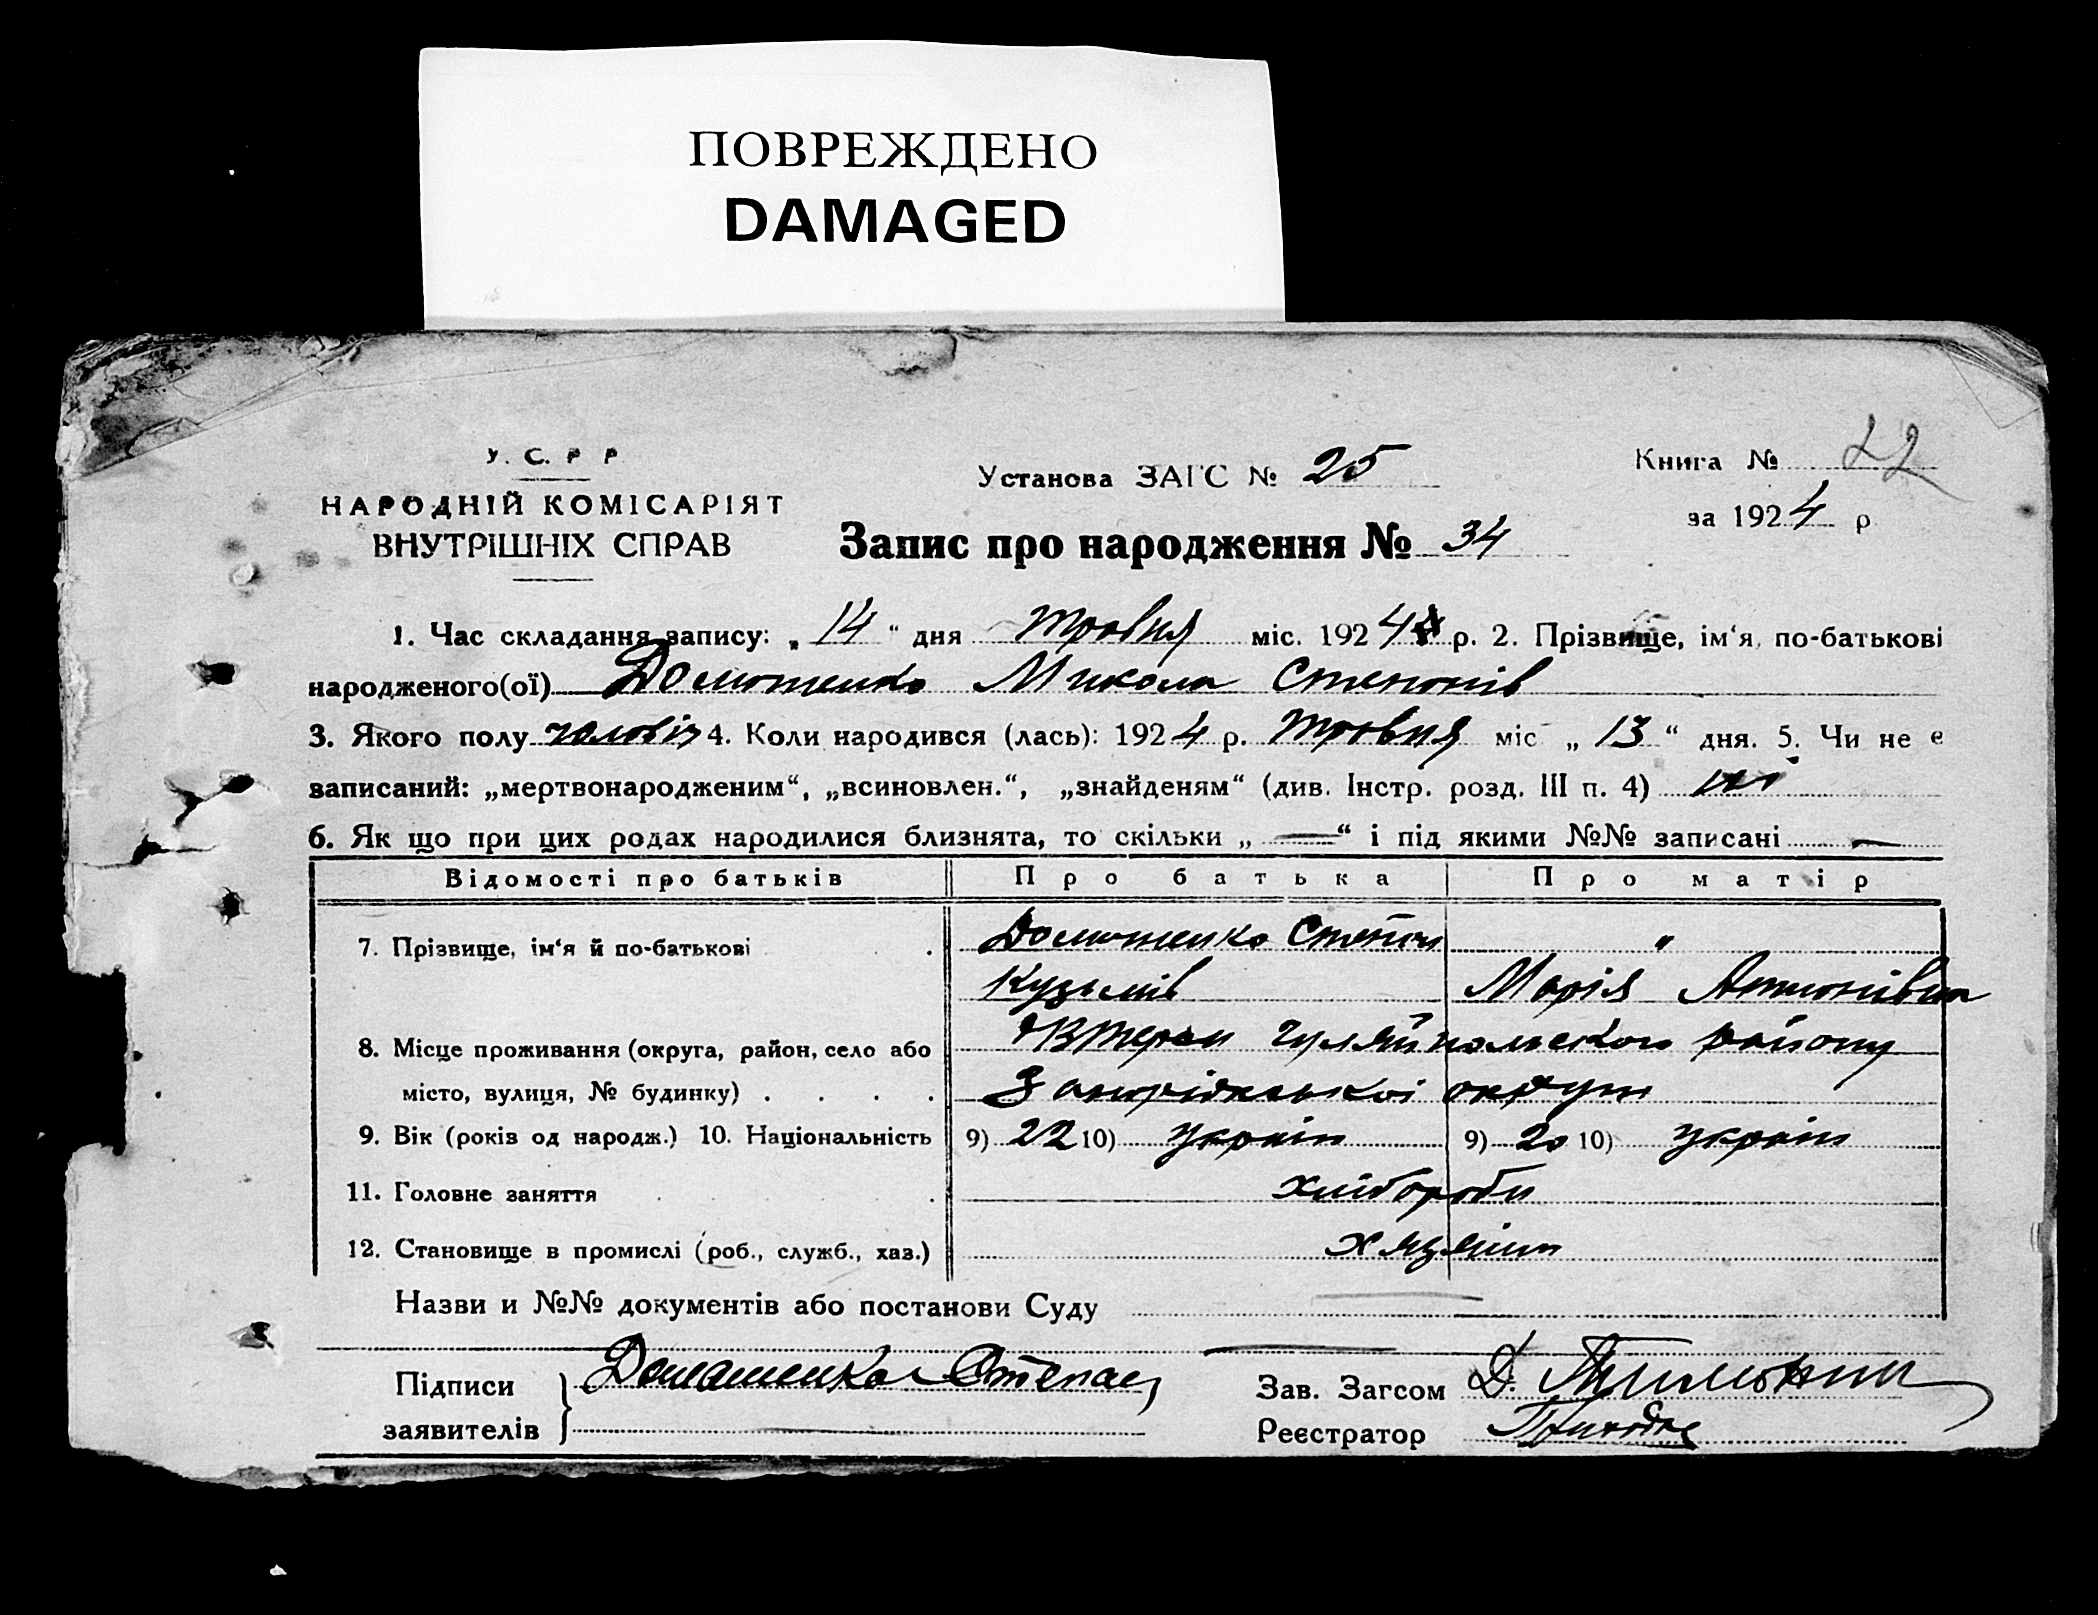 ПОВРЕЖДЕНО
DAMAGED
У. С. Р Р
НАРОДНІЙ КОМІСАРІЯТ
ВНУТРІШНІХ СПРАВ
Установа ЗАГС № 25
Запис про народження № 34
Книга № 22
за 1924 р
1. Час складання запису: „ 14 “ дня травня міс. 1924 р. 2. Прізвище, ім‘я, по-батькові
народженого(ої) Домашенко Микола Степанів
3. Якого полу чоловіч 4. Коли народився (лась): 1924 р. травня міс „ 13 “ дня. 5. Чи не є
записаний: „мертвонародженим“, „всиновлен.“, „знайденям“ (див. Інстр. розд. III п. 4) ні
6. Як що при цих родах народилися близнята, то скільки „ — “ і під якими №№ записані —
Відомості про батьків Про батька Про матір
7. Прізвище, ім‘я й по-батькові Домашенко Степан "
Кузьмів Марія Антонівна
8. Місце проживання (округа, район, село або Гуляйпольского району
місто, вулиця, № будинку) Запоріжської округи
9. Вік (років од народж.) 10. Національність 9) 22 10) україн 9) 20 10) україн
11. Головне заняття хлібороби
12. Становище в промислі (роб., служб., хаз.)
Назви и №№ документів або постанови Суду —
Підписи Домашенко Степан Зав. Загсом Д.
заявителів Реєстратор